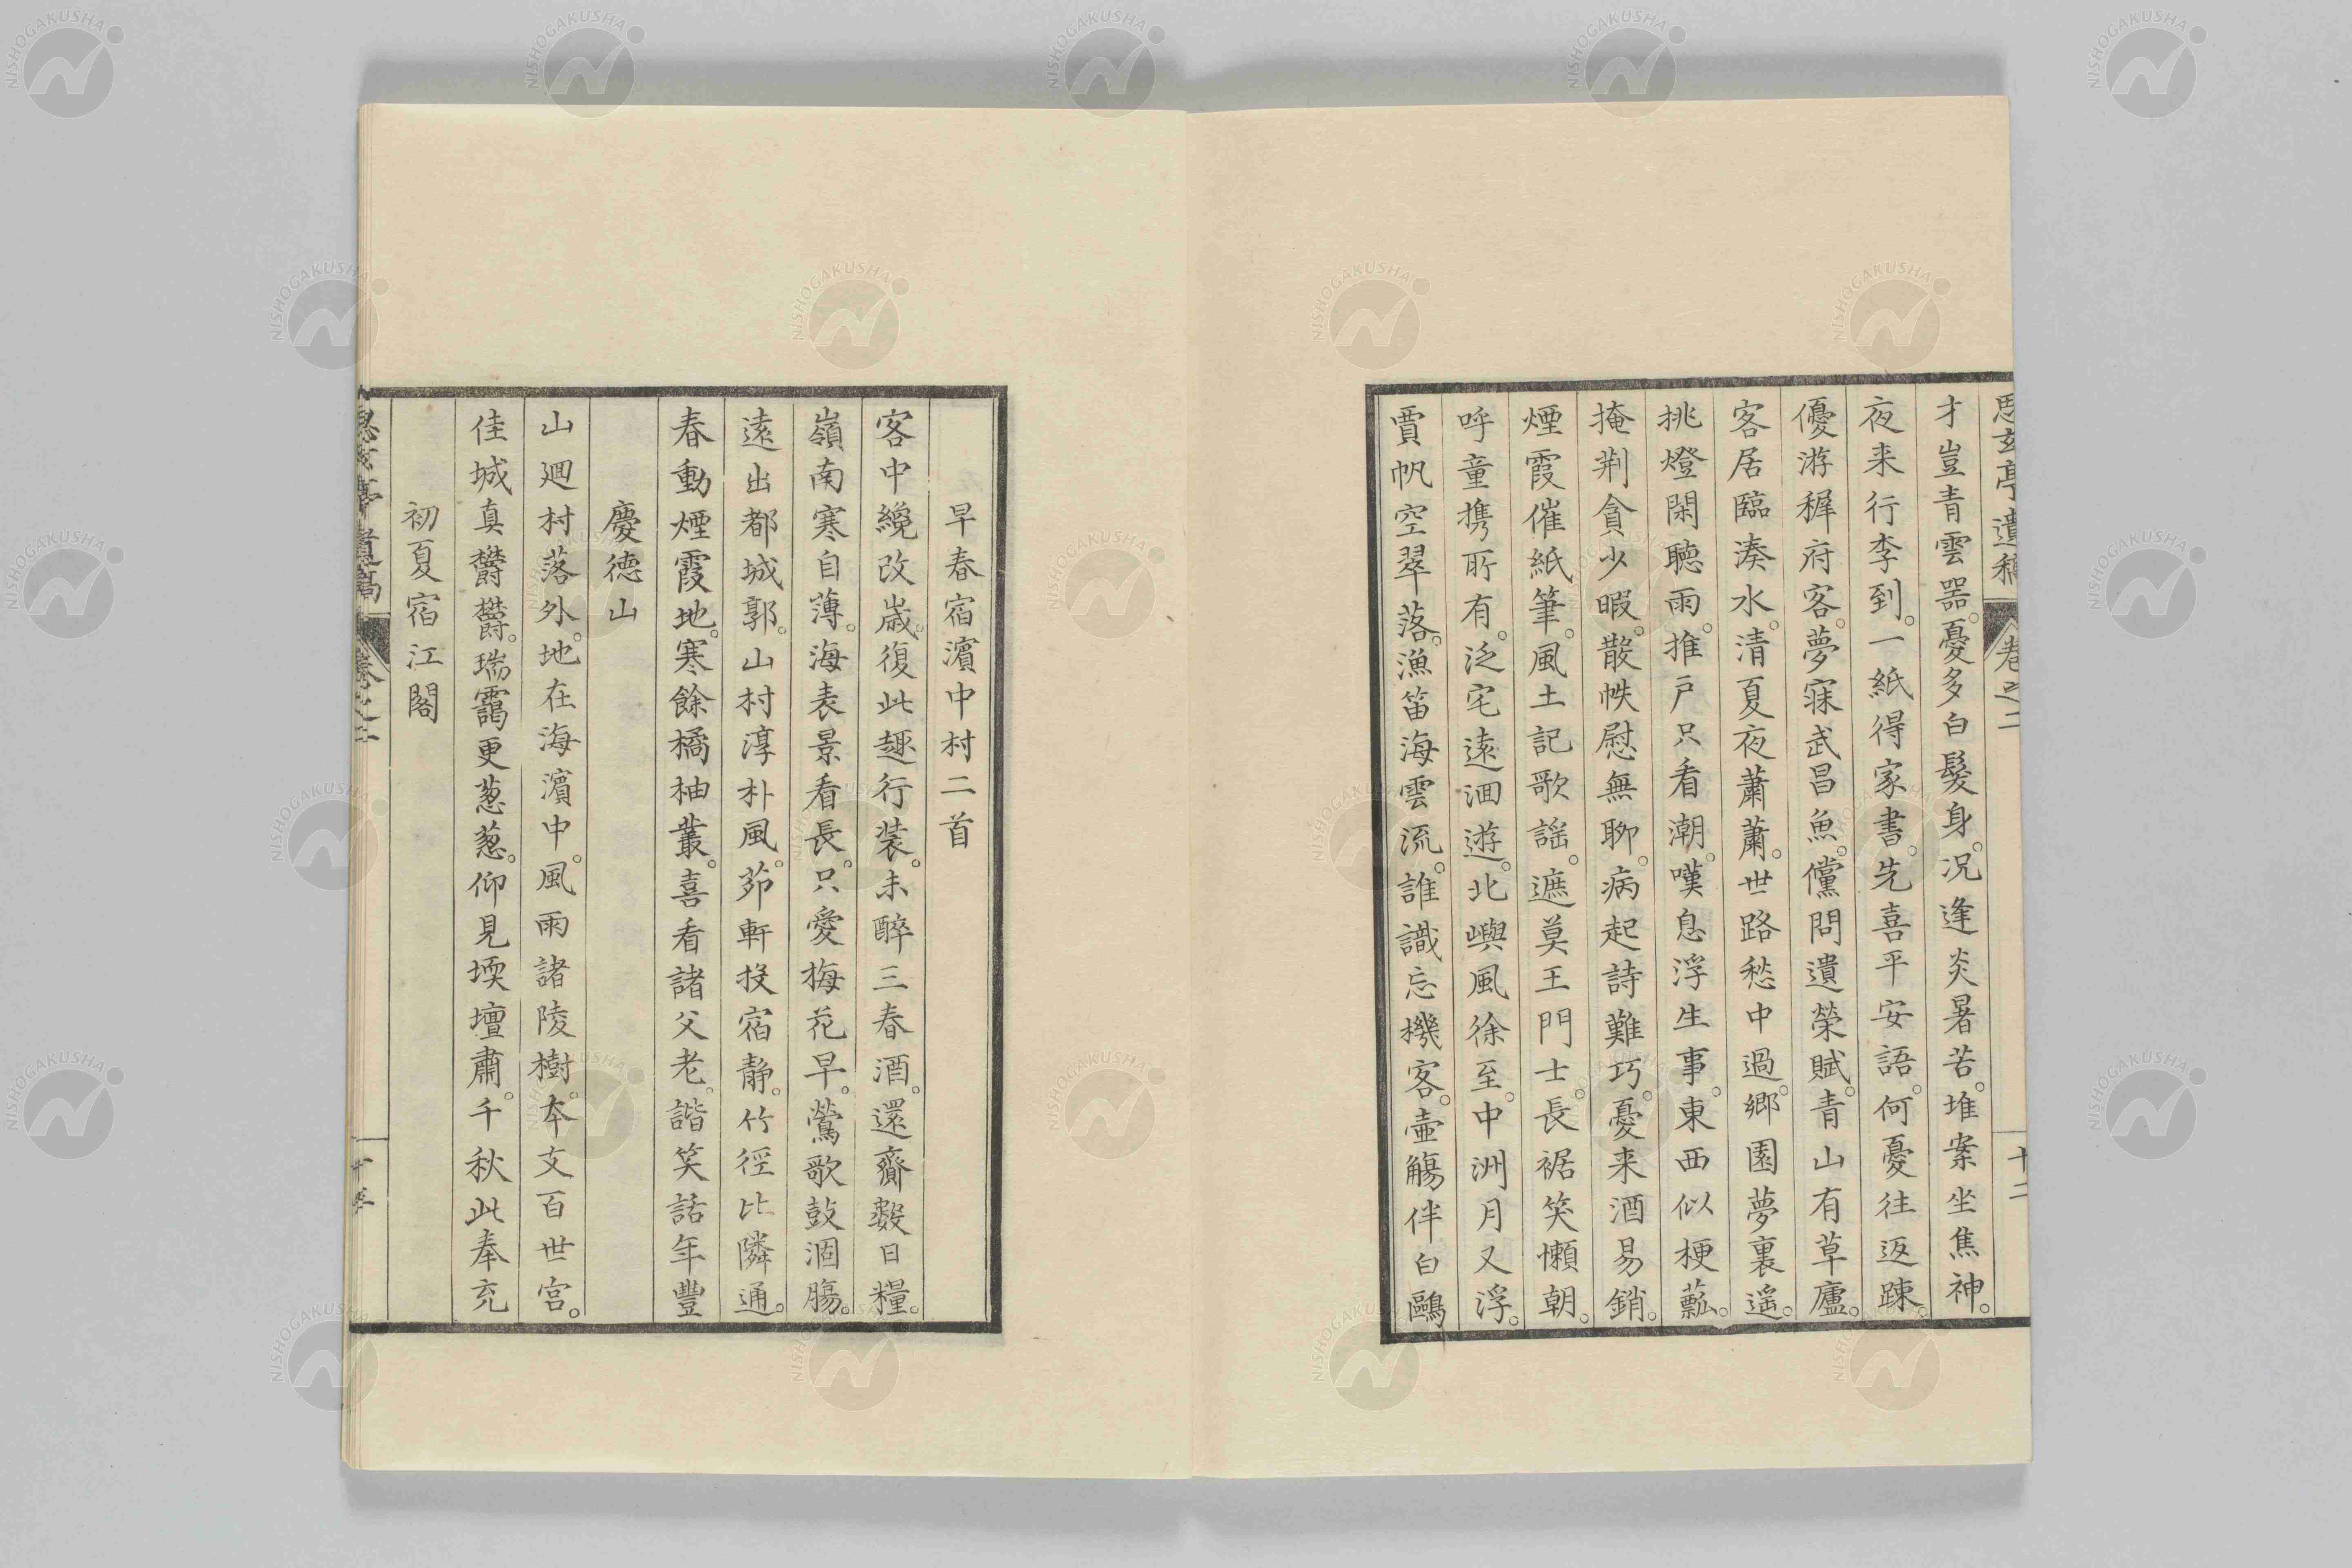 思玄亭遺稿 卷之二 十二
才豈青雲器。憂多白髮身。況逢炎暑苦。堆案坐焦神。
夜来行李到。一紙得家書。先喜平安語。何憂往返踈。
優游穉府客。夢寐武昌魚。儻問遺榮賦。青山有草廬。
客居臨湊水。清夏夜蕭蕭。世路愁中過。鄉園夢裏遥。
挑燈閑聴雨。推戸只看潮。嘆息浮生事。東西似梗蓏。
掩荆貪少暇。散帙慰無聊。病起詩難巧。憂来酒易銷。
煙霞催紙筆。風土記歌謡。遮莫王門士。長裾笑懶朝。
呼童携所有。泛宅遠洄遊。北嶼風徐至。中洲月又浮。
賈帆空翠落。漁笛海雲流。誰識忘機客。壷觴伴白鷗
早春宿濵中村二首
客中纔改歳。復此趣行装。未醉三春酒。還齎數日糧。
嶺南寒自薄。海表景看長。只愛梅花早。鶯歌鼓涸腸。
遠出都城郭。山村淳朴風。茆軒投宿静。竹徑比隣通。
春動煙霞地。寒餘橘柚叢。喜看諸父老。諧笑話年豐
慶徳山
山廻村落外。地在海濵中。風雨諸陵樹。夲支百世宫。
佳城真欝欝。瑞靄更葱葱。仰見堧壇肅。千秋此奉充
初夏宿江閣
NISHOGAKUSHA